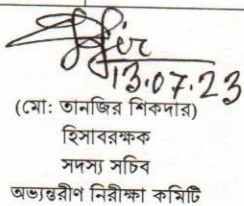 13.07.23
(মো: তানজির শিকদার)
হিসাবরক্ষক
সদস্য সচিব
অভ্যন্তরীণ নিরীক্ষা কমিটি